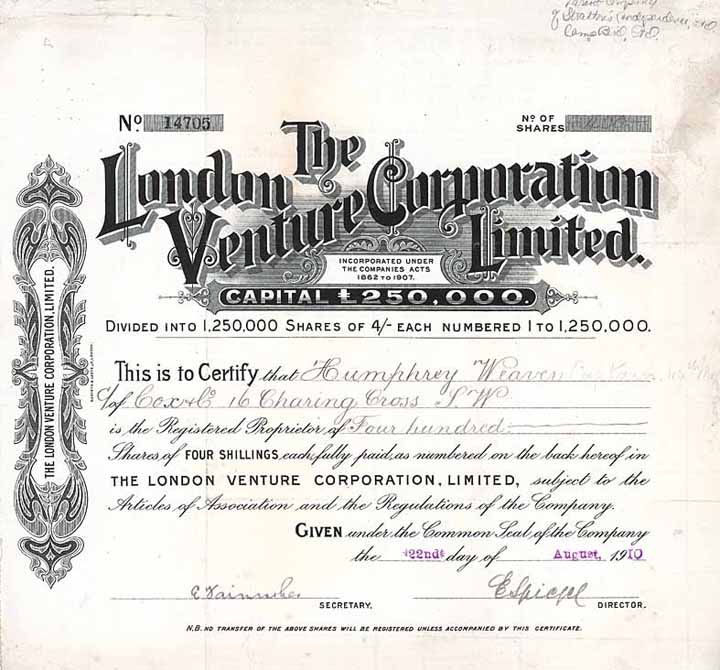 Parent Company
of Stratton's Independence, Ltd.
Camp Bird, Ltd.
No 14705
No OF SHARES 400
The
London Venture Corporation
Limited.
INCORPORATED UNDER
THE COMPANIES ACTS
1862 TO 1907.
CAPITAL £250,000.
DIVIDED INTO 1,250,000 SHARES OF 4/- EACH NUMBERED 1 TO 1,250,000.
This is to Certify that Humphrey Weaven
c/o of Cox & Co 16 Charing Cross S.W
is the Registered Proprietor of Four hundred
Shares of FOUR SHILLINGS each, fully paid, as numbered on the back hereof in
THE LONDON VENTURE CORPORATION, LIMITED, subject to the
Articles of Association and the Regulations of the Company.
GIVEN under the Common Seal of the Company
the 22nd day of August, 1910
E Spiegel
SECRETARY.
DIRECTOR.
N.B. NO TRANSFER OF THE ABOVE SHARES WILL BE REGISTERED UNLESS ACCOMPANIED BY THIS CERTIFICATE.
THE LONDON VENTURE CORPORATION, LIMITED.